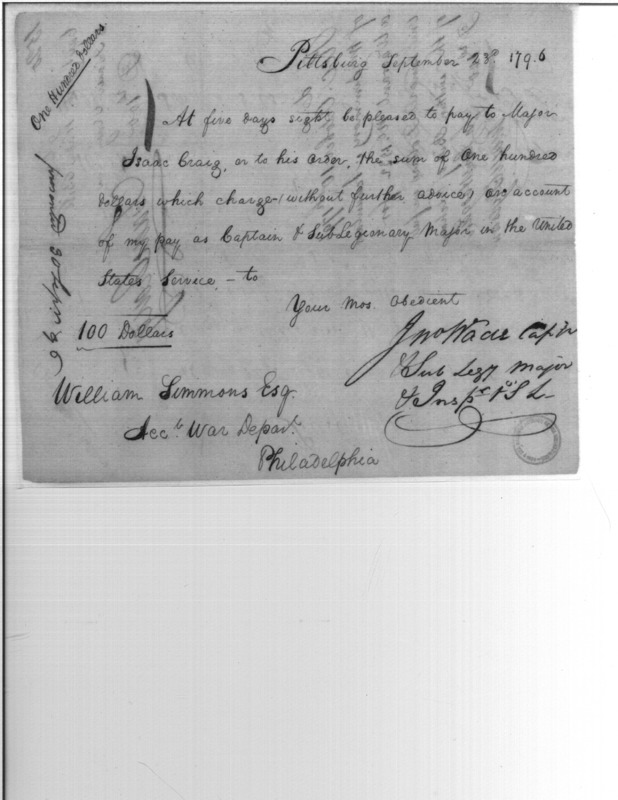 Pittsburg September 23d. 1796
At five days sight be pleased to pay to Major
Isaac Craig, or to his order, the sum of One hundred
dollars which charge (without further advice) on account
of my pay as Captain & Sub Legionary Major in the United
States Service, – to
Your Mos. Obedient
Jno Wade Capt'n
& Sub Legy Major
& Inspr
100 Dollars
William Simmons Esq.
Acct. War Depart.
Philadelphia
One Hundred Dollars.